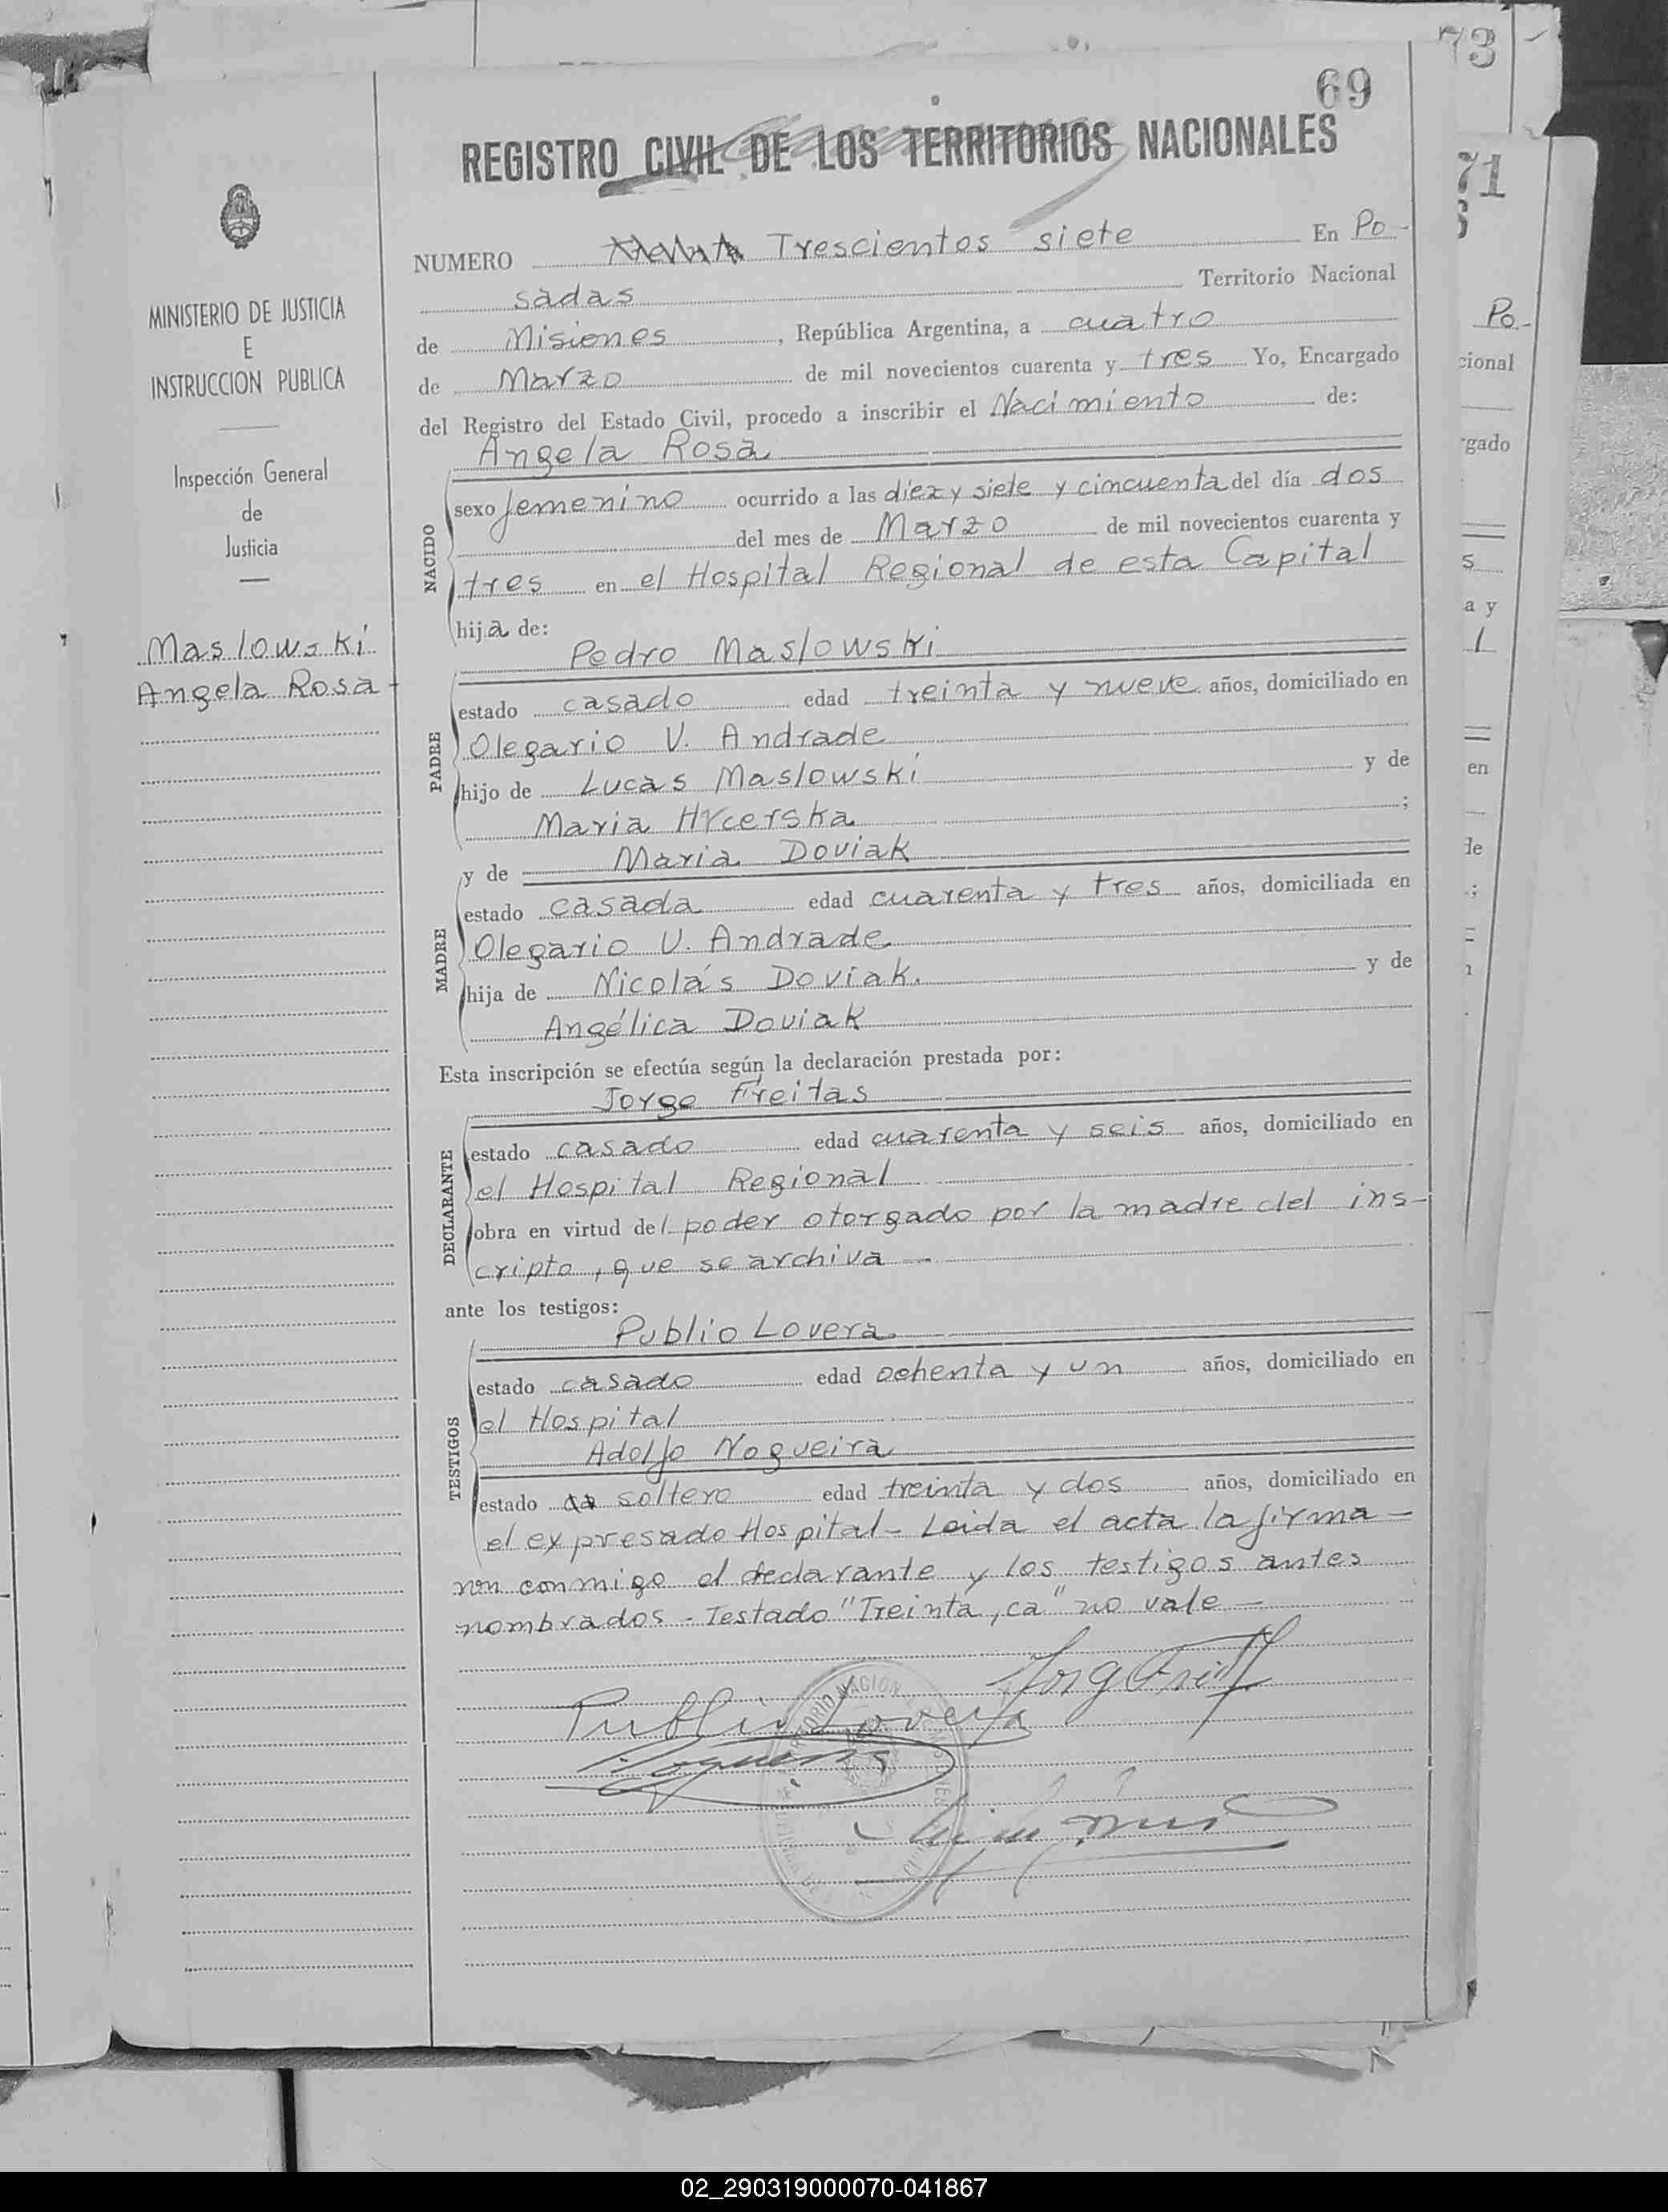 73
69
REGISTRO CIVIL DE LOS TERRITORIOS NACIONALES
71
NUMERO Trescientos siete En Po-
sadas Territorio Nacional
de Misiones, República Argentina, a cuatro
de Marzo de mil novecientos cuarenta y tres Yo, Encargado
del Registro del Estado Civil, procedo a inscribir el Nacimiento de:
Angela Rosa
NACIDO
sexo femenino ocurrido a las diez y siete y cincuenta del día dos
del mes de Marzo de mil novecientos cuarenta y
tres en el Hospital Regional de esta Capital
hija de:
Pedro Maslowski
PADRE
estado casado edad treinta y nueve años, domiciliado en
Olegario V. Andrade
hijo de Lucas Maslowski y de
Maria Hycerska ;
y de Maria Doviak
MADRE
estado casada edad cuarenta y tres años, domiciliada en
Olegario V. Andrade
hija de Nicolás Doviak. y de
Angélica Doviak
Esta inscripción se efectúa según la declaración prestada por:
Jorge Freitas
DECLARANTE
estado casado edad cuarenta y seis años, domiciliado en
el Hospital Regional
obra en virtud del poder otorgado por la madre del ins-
cripto, que se archiva —
ante los testigos:
Publio Lovera
TESTIGOS
estado casado edad ochenta y un años, domiciliado en
el Hospital
Adolfo Nogueira
estado ca soltero edad treinta y dos años, domiciliado en
el expresado Hospital - Leida el acta la firma-
ron conmigo el declarante y los testigos antes
nombrados - Testado "Treinta, ca" no vale —
Publio Lovera
MINISTERIO DE JUSTICIA
E
INSTRUCCION PUBLICA
Inspección General
de
Justicia
Maslowski
Angela Rosa -
Po-
cional
rgado
s
a y
l
en
de
;
02_290319000070-041867